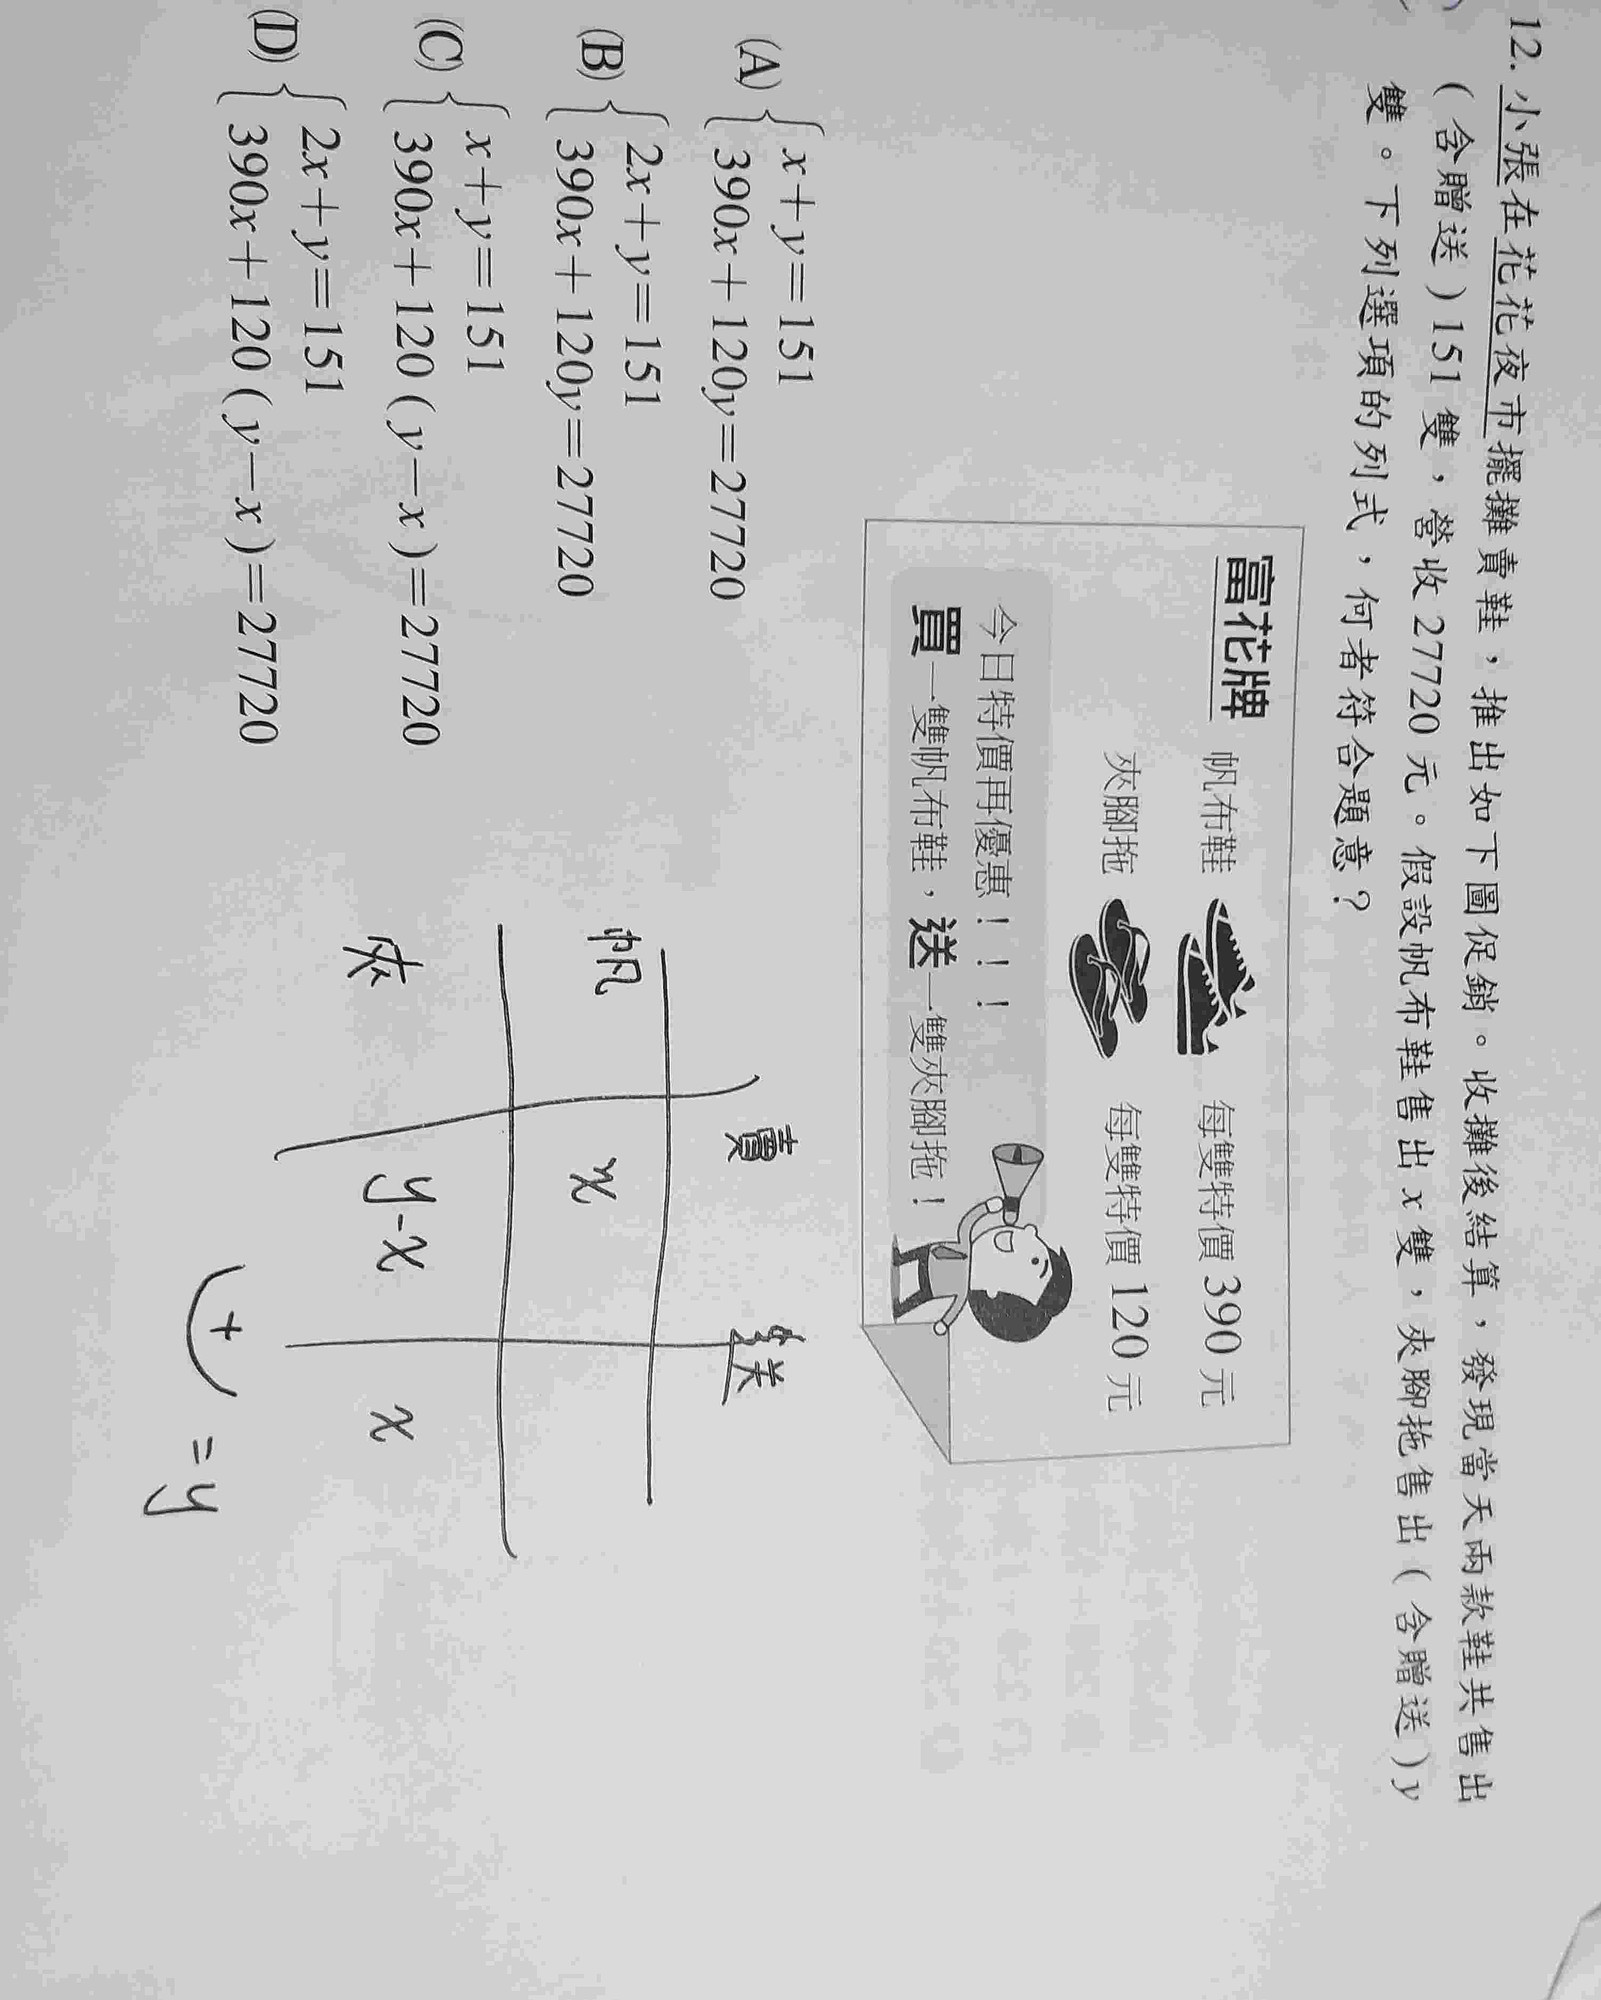 12. 小張在花花夜市擺攤賣鞋，推出如下圖促銷。收攤後結算，發現當天兩款鞋共售出
（含贈送）151雙，營收27720元。假設帆布鞋售出x雙，夾腳拖售出（含贈送）y
雙。下列選項的列式，何者符合題意？
富花牌
帆布鞋 每雙特價390元
夾腳拖 每雙特價120元
今日特價再優惠！！！
買一雙帆布鞋，送一雙夾腳拖！
(A) { x+y=151
390x+120y=27720
(B) { 2x+y=151
390x+120y=27720
(C) { x+y=151
390x+120(y−x)=27720
(D) { 2x+y=151
390x+120(y−x)=27720
賣 送
帆 x
夾 y-x x
+ =y